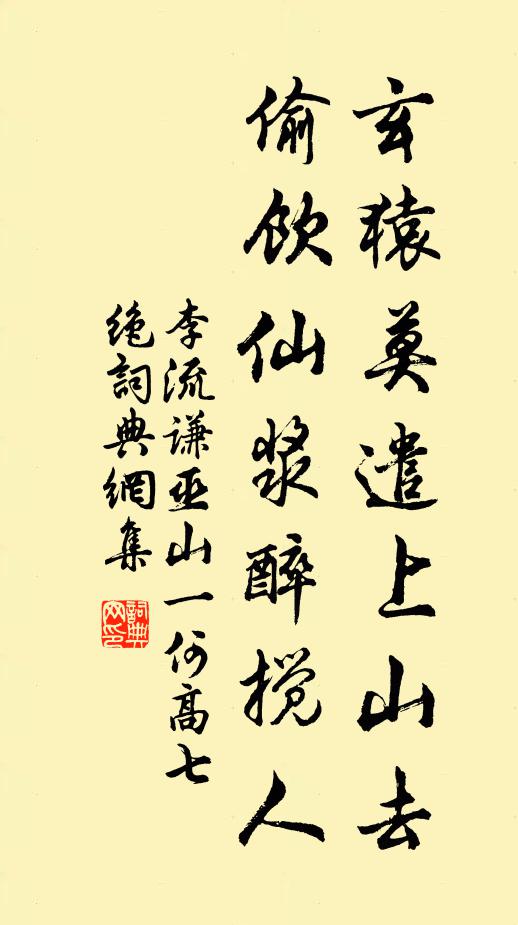 玄猿莫遣上山去
偷飲仙漿醉攪人
李流謙巫山一何高七
絶詞典網集
詞典网印